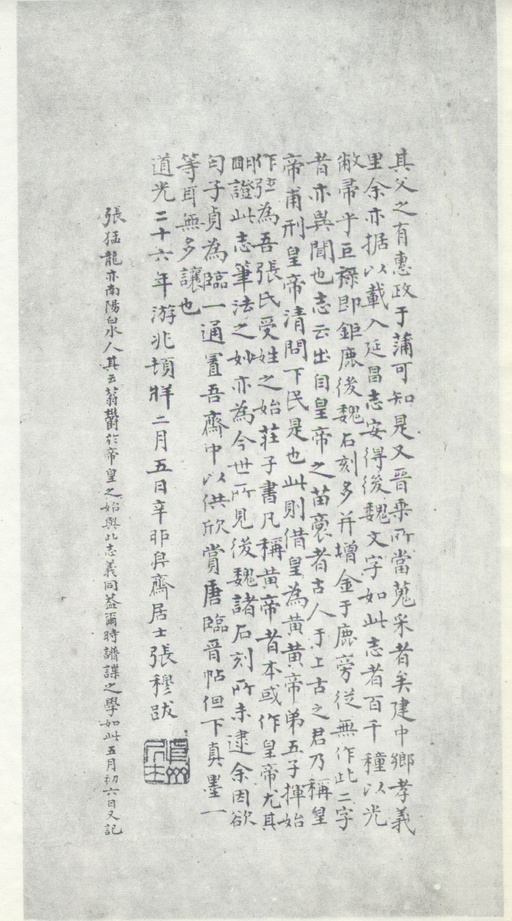 其父之有惠政于蒲可知是又晉乘所當蒐采者矣建中鄉孝義
里余亦据以載入延昌志安得後魏文字如此志者百千種以光
敝帚乎巨祿即鉅鹿後魏石刻多并增金于鹿旁從無作此二字
者亦異聞也志云出自皇帝之苗裔者古人于上古之君乃稱皇
帝甫刑皇帝清問下民是也此則借皇為黃黃帝弟五子揮始
作弧為吾張氏受姓之始莊子書凡稱黃帝者本或作皇帝尤其
明證此志筆法之妙亦為今世所見後魏諸石刻所未逮余因欲
子貞為臨一通置吾齋中以供欣賞唐臨晉帖但下真墨一
等耳無多讓也
道光二十六年游兆頓牂二月五日辛卯齋居士張穆跋
張猛龍亦南陽白水人其云蓊鬱於帝皇之始與此志義同蓋爾時譜諜之學如此五月初六日又記